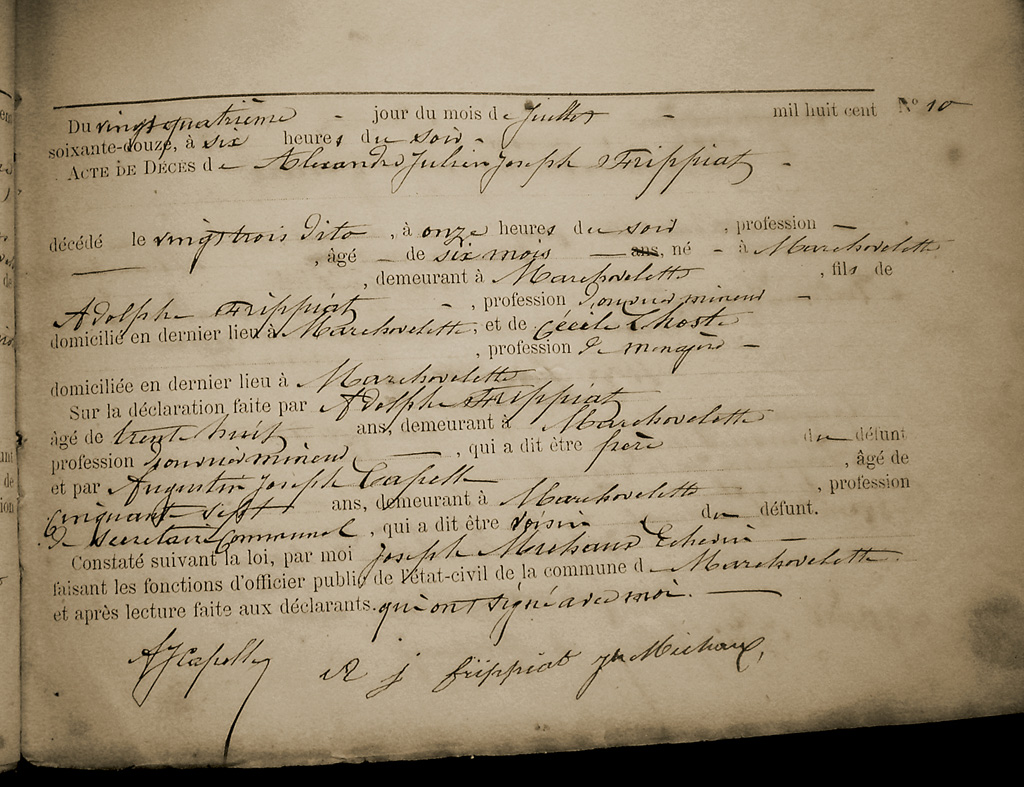 Du vingt quatrième - jour du mois de Juillet - mil huit cent N° 10
soixante-douze, à six heures du soir -
ACTE DE DÉCÈS de Alexandre Julien Joseph Frippiat -
décédé le vingt trois dito, à onze heures du soir, profession —
—, âgé - de six mois — ans, né - à Marchovelette
, demeurant à Marchovelette, fils de
Adolphe Frippiat -, profession d'ouvrier mineur -
domicilié en dernier lieu à Marchovelette, et de Cécile Lhoste
, profession de menagère -
domiciliée en dernier lieu à Marchovelette
Sur la déclaration faite par Adolphe Frippiat
âgé de trente huit ans, demeurant à Marchovelette
profession d'ouvrier mineur —, qui a dit être père du défunt
et par Augustin Joseph Capelle, âgé de
cinquante sept ans, demeurant à Marchovelette, profession
de secretaire Communal, qui a dit être voisin du défunt.
Constaté suivant la loi, par moi Joseph Echevin
faisant les fonctions d'officier public de l'état-civil de la commune de Marchovelette
et après lecture faite aux déclarants. qui ont signé avec moi. —
AJCapelle j frippiat Michaux,